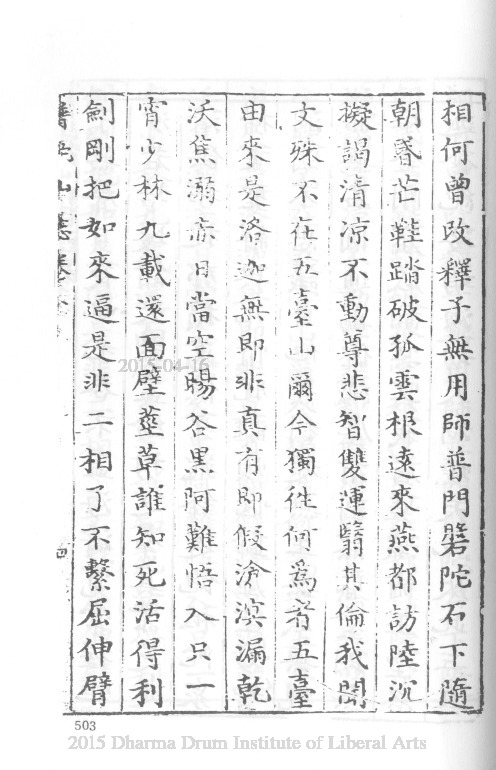 相何曾改釋子無用師普門磐陀石下隨
朝昏芒鞋踏破孤雲根遠來燕都訪陸沉
擬謁清凉不動尊悲智雙運翳其倫我聞
文殊不在五臺山爾今獨徃何爲者五臺
由來是洛迦無即非真有即假滄溟漏乾
沃焦溺赤日當空暘谷黑阿難悟入只一
宵少林九載還面壁莖草誰知死活得利
劍剛把如來逼是非二相了不繫屈伸臂
普陀山志卷
2015-04-16
503
2015 Dharma Drum Institute of Liberal Arts